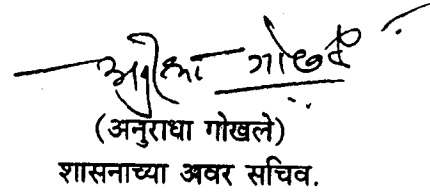 अनुराधा गोखले
(अनुराधा गोखले)
शासनाच्या अवर सचिव.